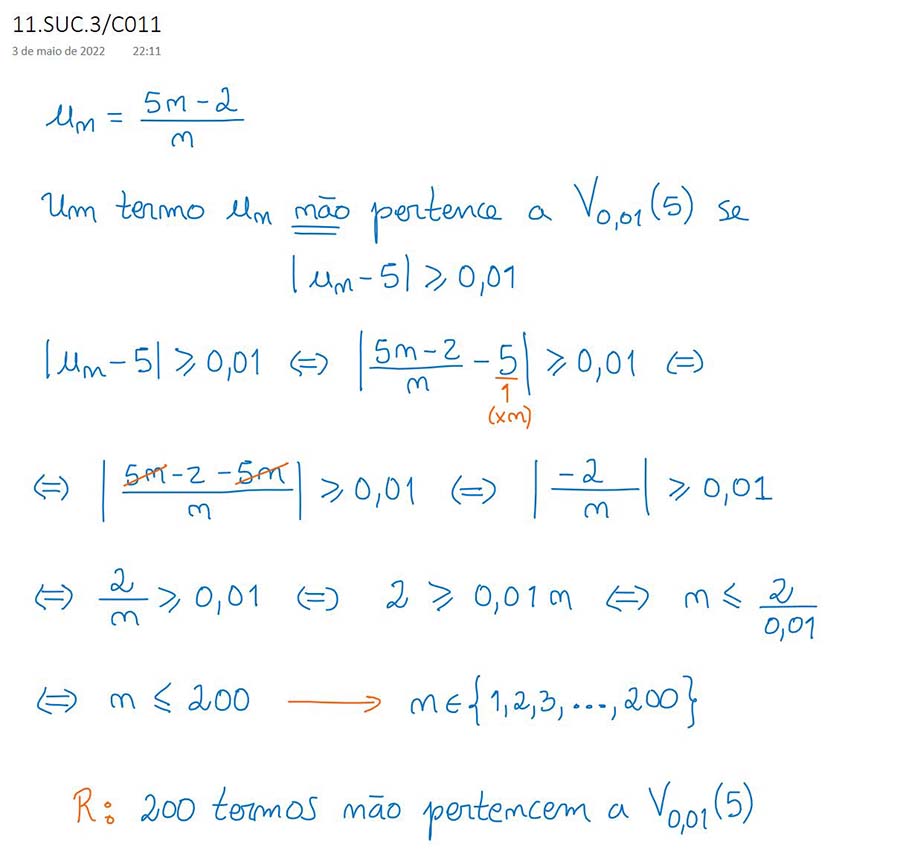 11.SUC.3/C011
3 de maio de 2022 22:11
un = (5n - 2)/n
Um termo un não pertence a V0,01(5) se
|un - 5| ⩾ 0,01
|un - 5| ⩾ 0,01 ⇔ |(5n - 2)/n - 5/1| ⩾ 0,01 ⇔
(×n)
⇔ |(5n - 2 - 5n)/n| ⩾ 0,01 ⇔ |-2/n| ⩾ 0,01
⇔ 2/n ⩾ 0,01 ⇔ 2 ⩾ 0,01n ⇔ n ⩽ 2/0,01
⇔ n ⩽ 200 ⟶ n ∈ {1, 2, 3, ..., 200}
R: 200 termos não pertencem a V0,01(5)